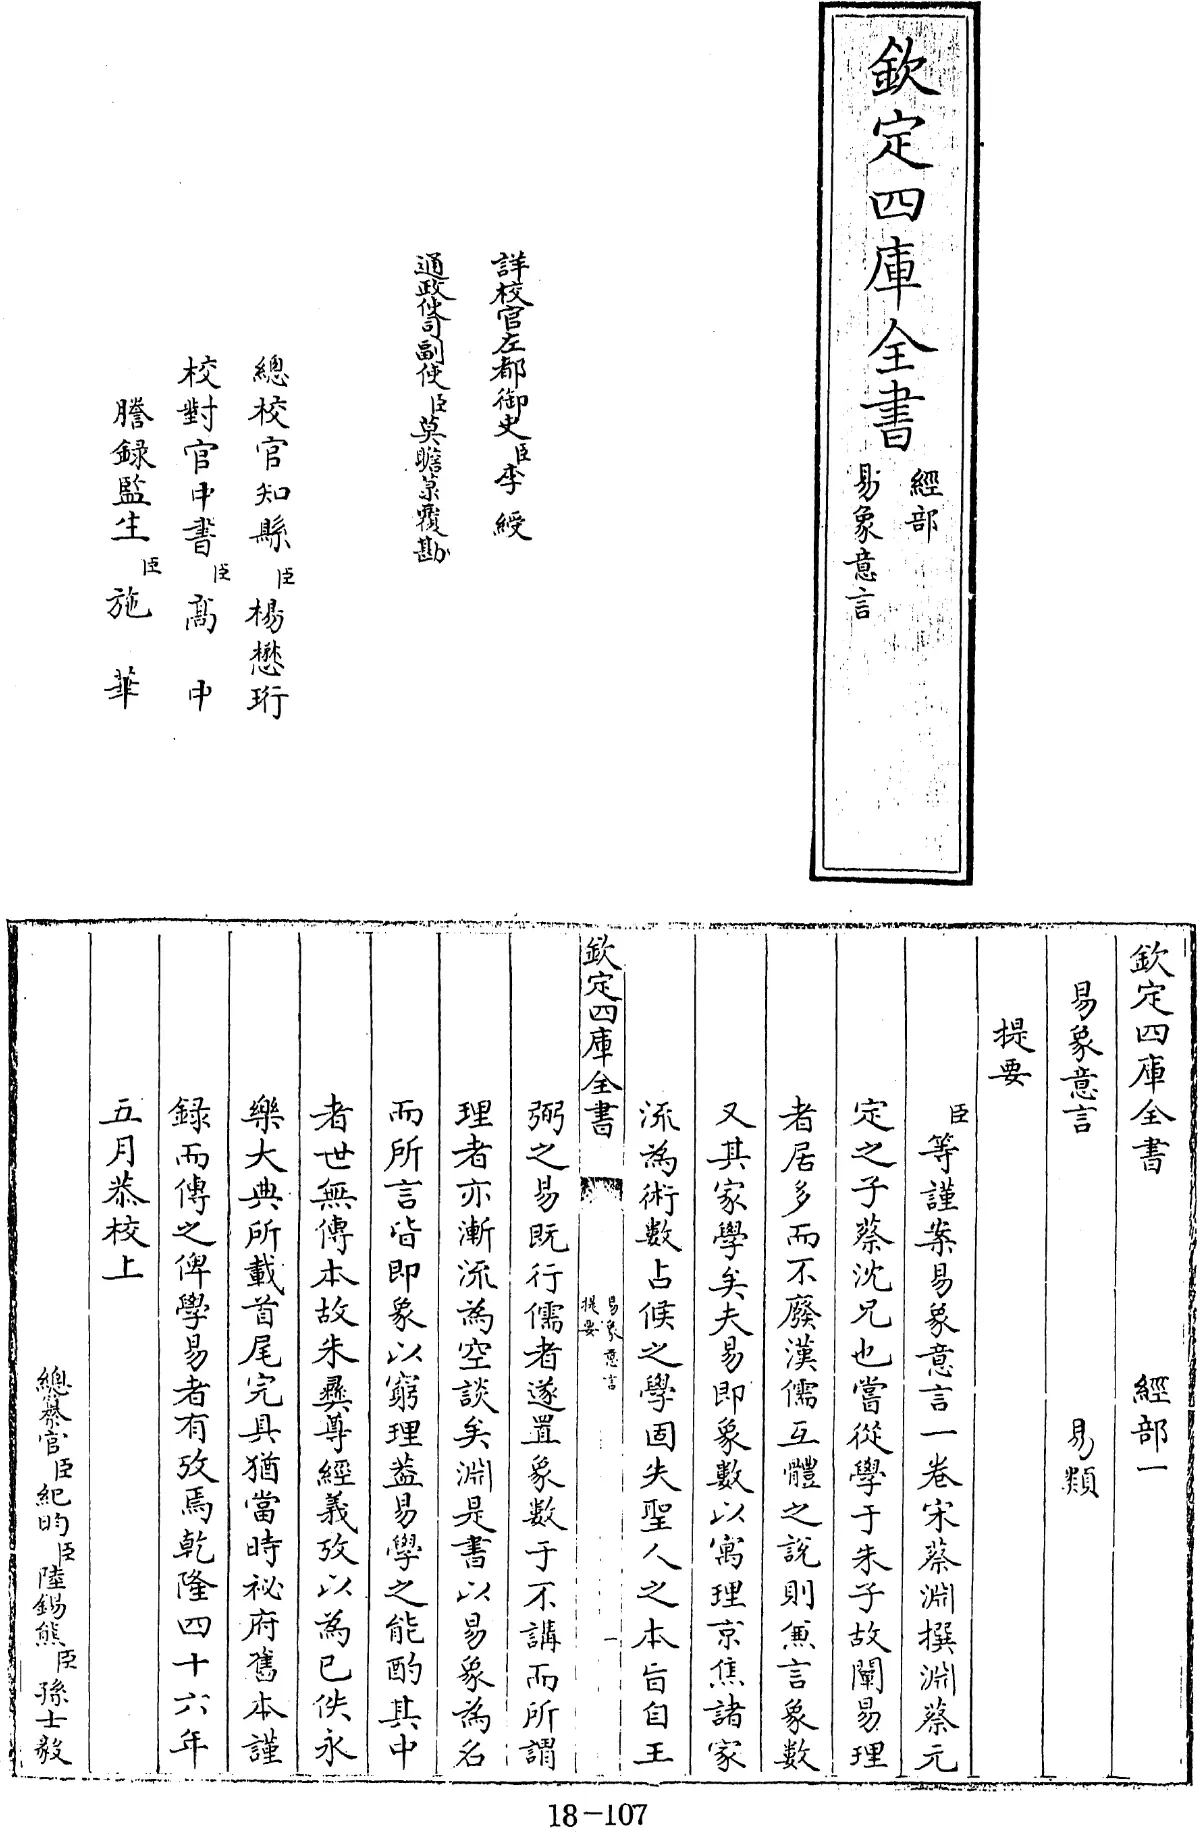 欽定四庫全書
經部
易象意言
詳校官左都御史臣李綬
通政使司副使臣莫瞻菉覆勘
總校官知縣臣楊懋珩
校對官中書臣高中
謄録監生臣施華
欽定四庫全書 經部一
易象意言 易類
提要
臣等謹案易象意言一卷宋蔡淵撰淵蔡元
定之子蔡沈兄也當從學于朱子故闡易理
者居多而不廢漢儒互體之說則兼言象數
又其家學矣夫易即象數以寓理京焦諸家
流為術數占候之學固失聖人之本旨自王
欽定四庫全書
易象意言
提要
一
弼之易既行儒者遂置象數于不講而所謂
理者亦漸流為空談矣淵是書以易象為名
而所言皆即象以窮理葢易學之能酌其中
者世無傳本故朱彞尊經義攷以為已佚永
樂大典所載首尾完具猶當時祕府舊本謹
録而傳之俾學易者有攷焉乾隆四十六年
五月恭校上
總纂官臣紀昀臣陸錫熊臣孫士毅
18-107